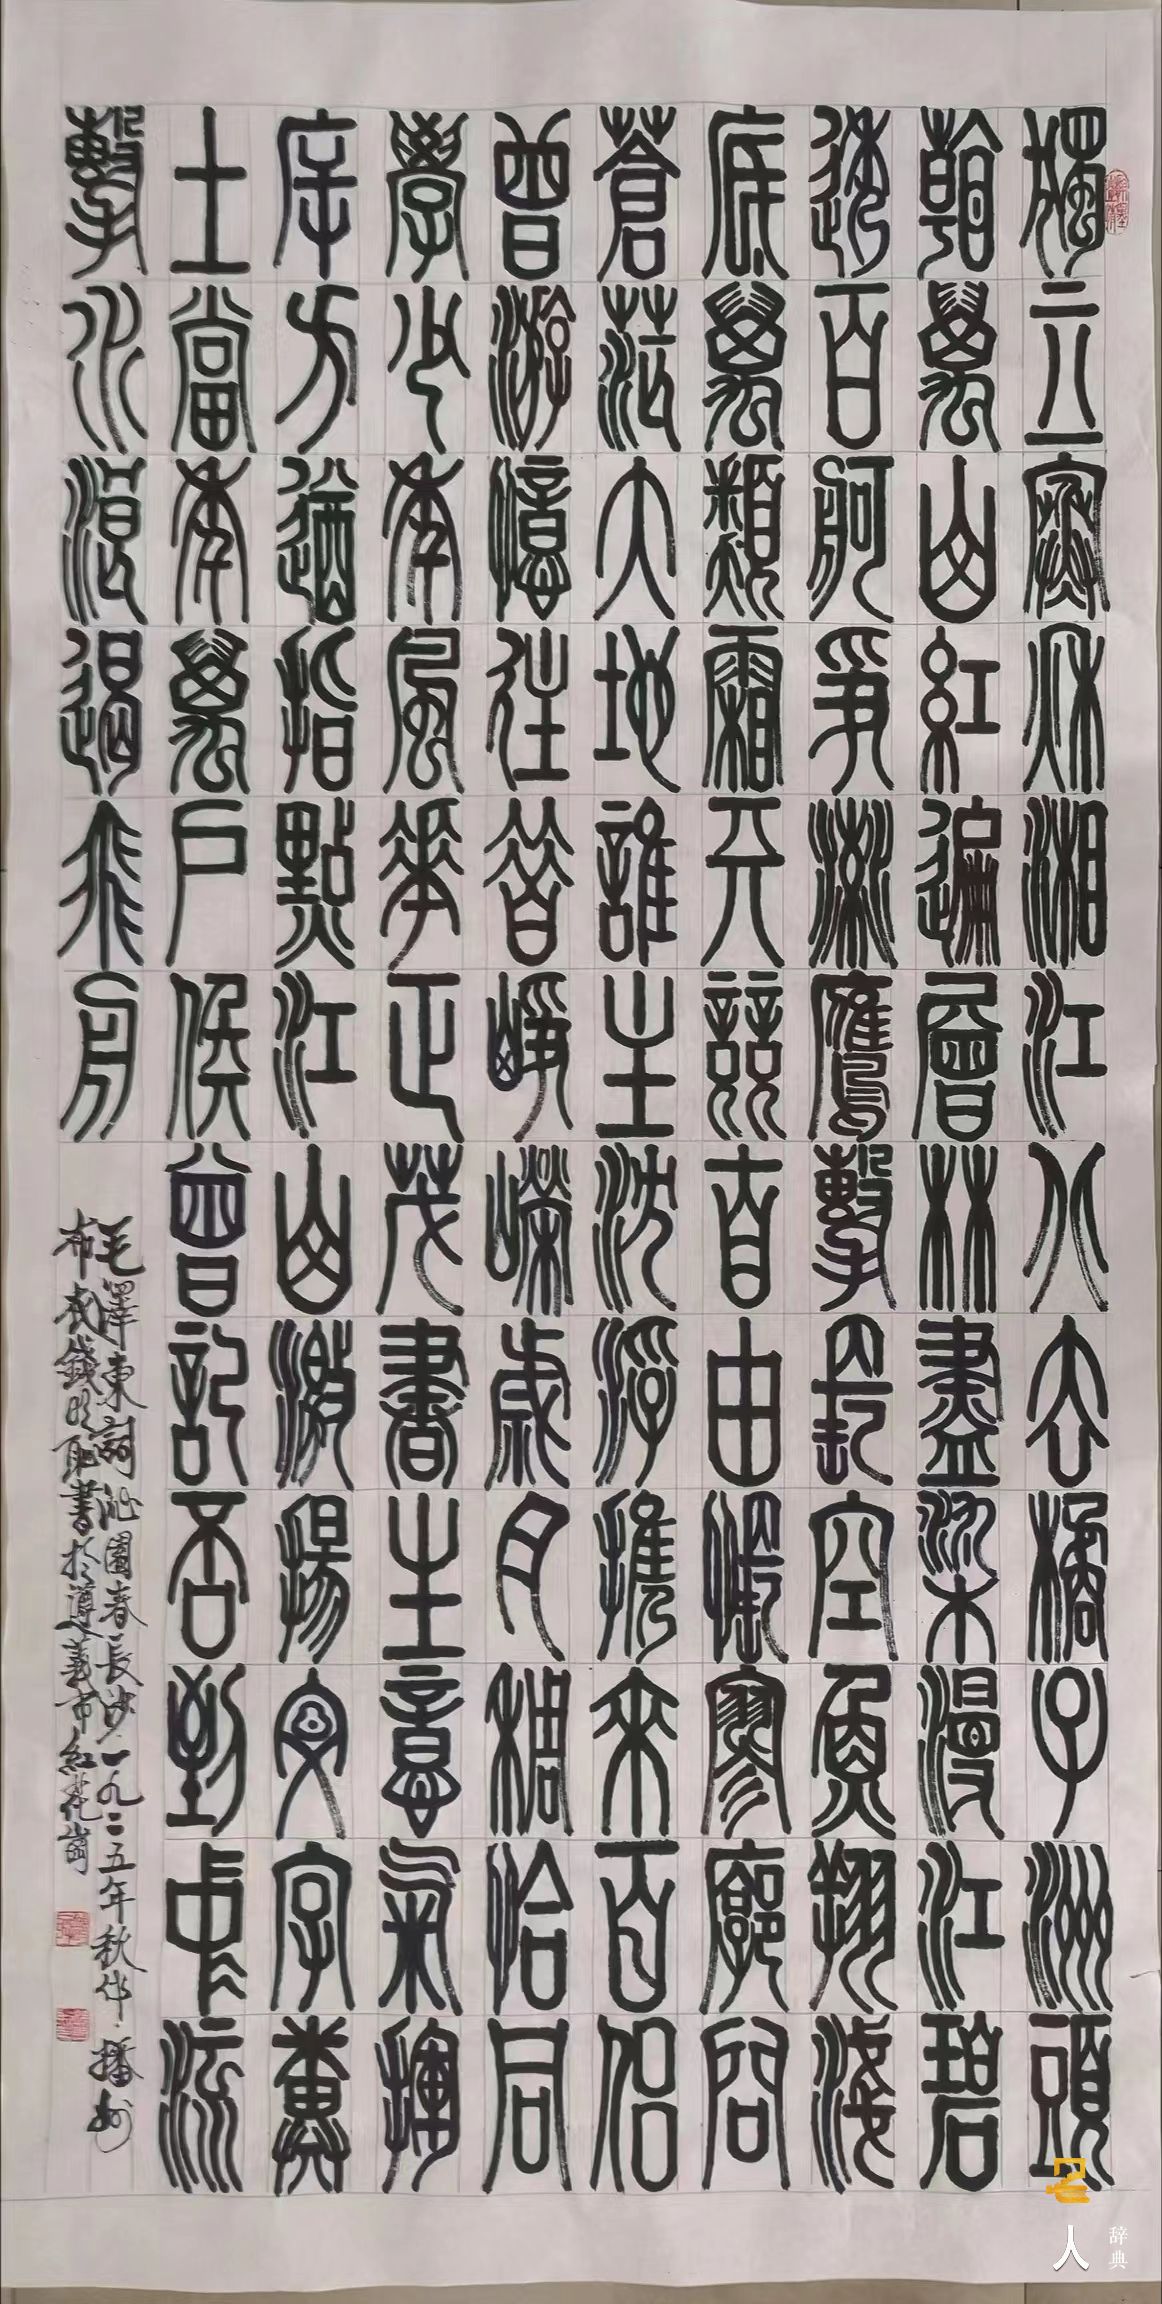 獨立寒秋湘江北去橘子洲頭
看萬山紅遍層林盡染漫江碧
透百舸爭流鷹擊長空魚翔淺
底萬類霜天競自由悵寥廓問
蒼茫大地誰主沈浮攜來百侶
曾游憶往昔崢嶸歲月稠恰同
學少年風華正茂書生意氣揮
斥方遒指點江山激揚文字糞
土當年萬戶侯曾記否到中流
擊水浪遏飛舟
毛澤東詞沁園春長沙一九二五年秋作 播州
布衣錢書於遵義市紅花崗
人 辞典